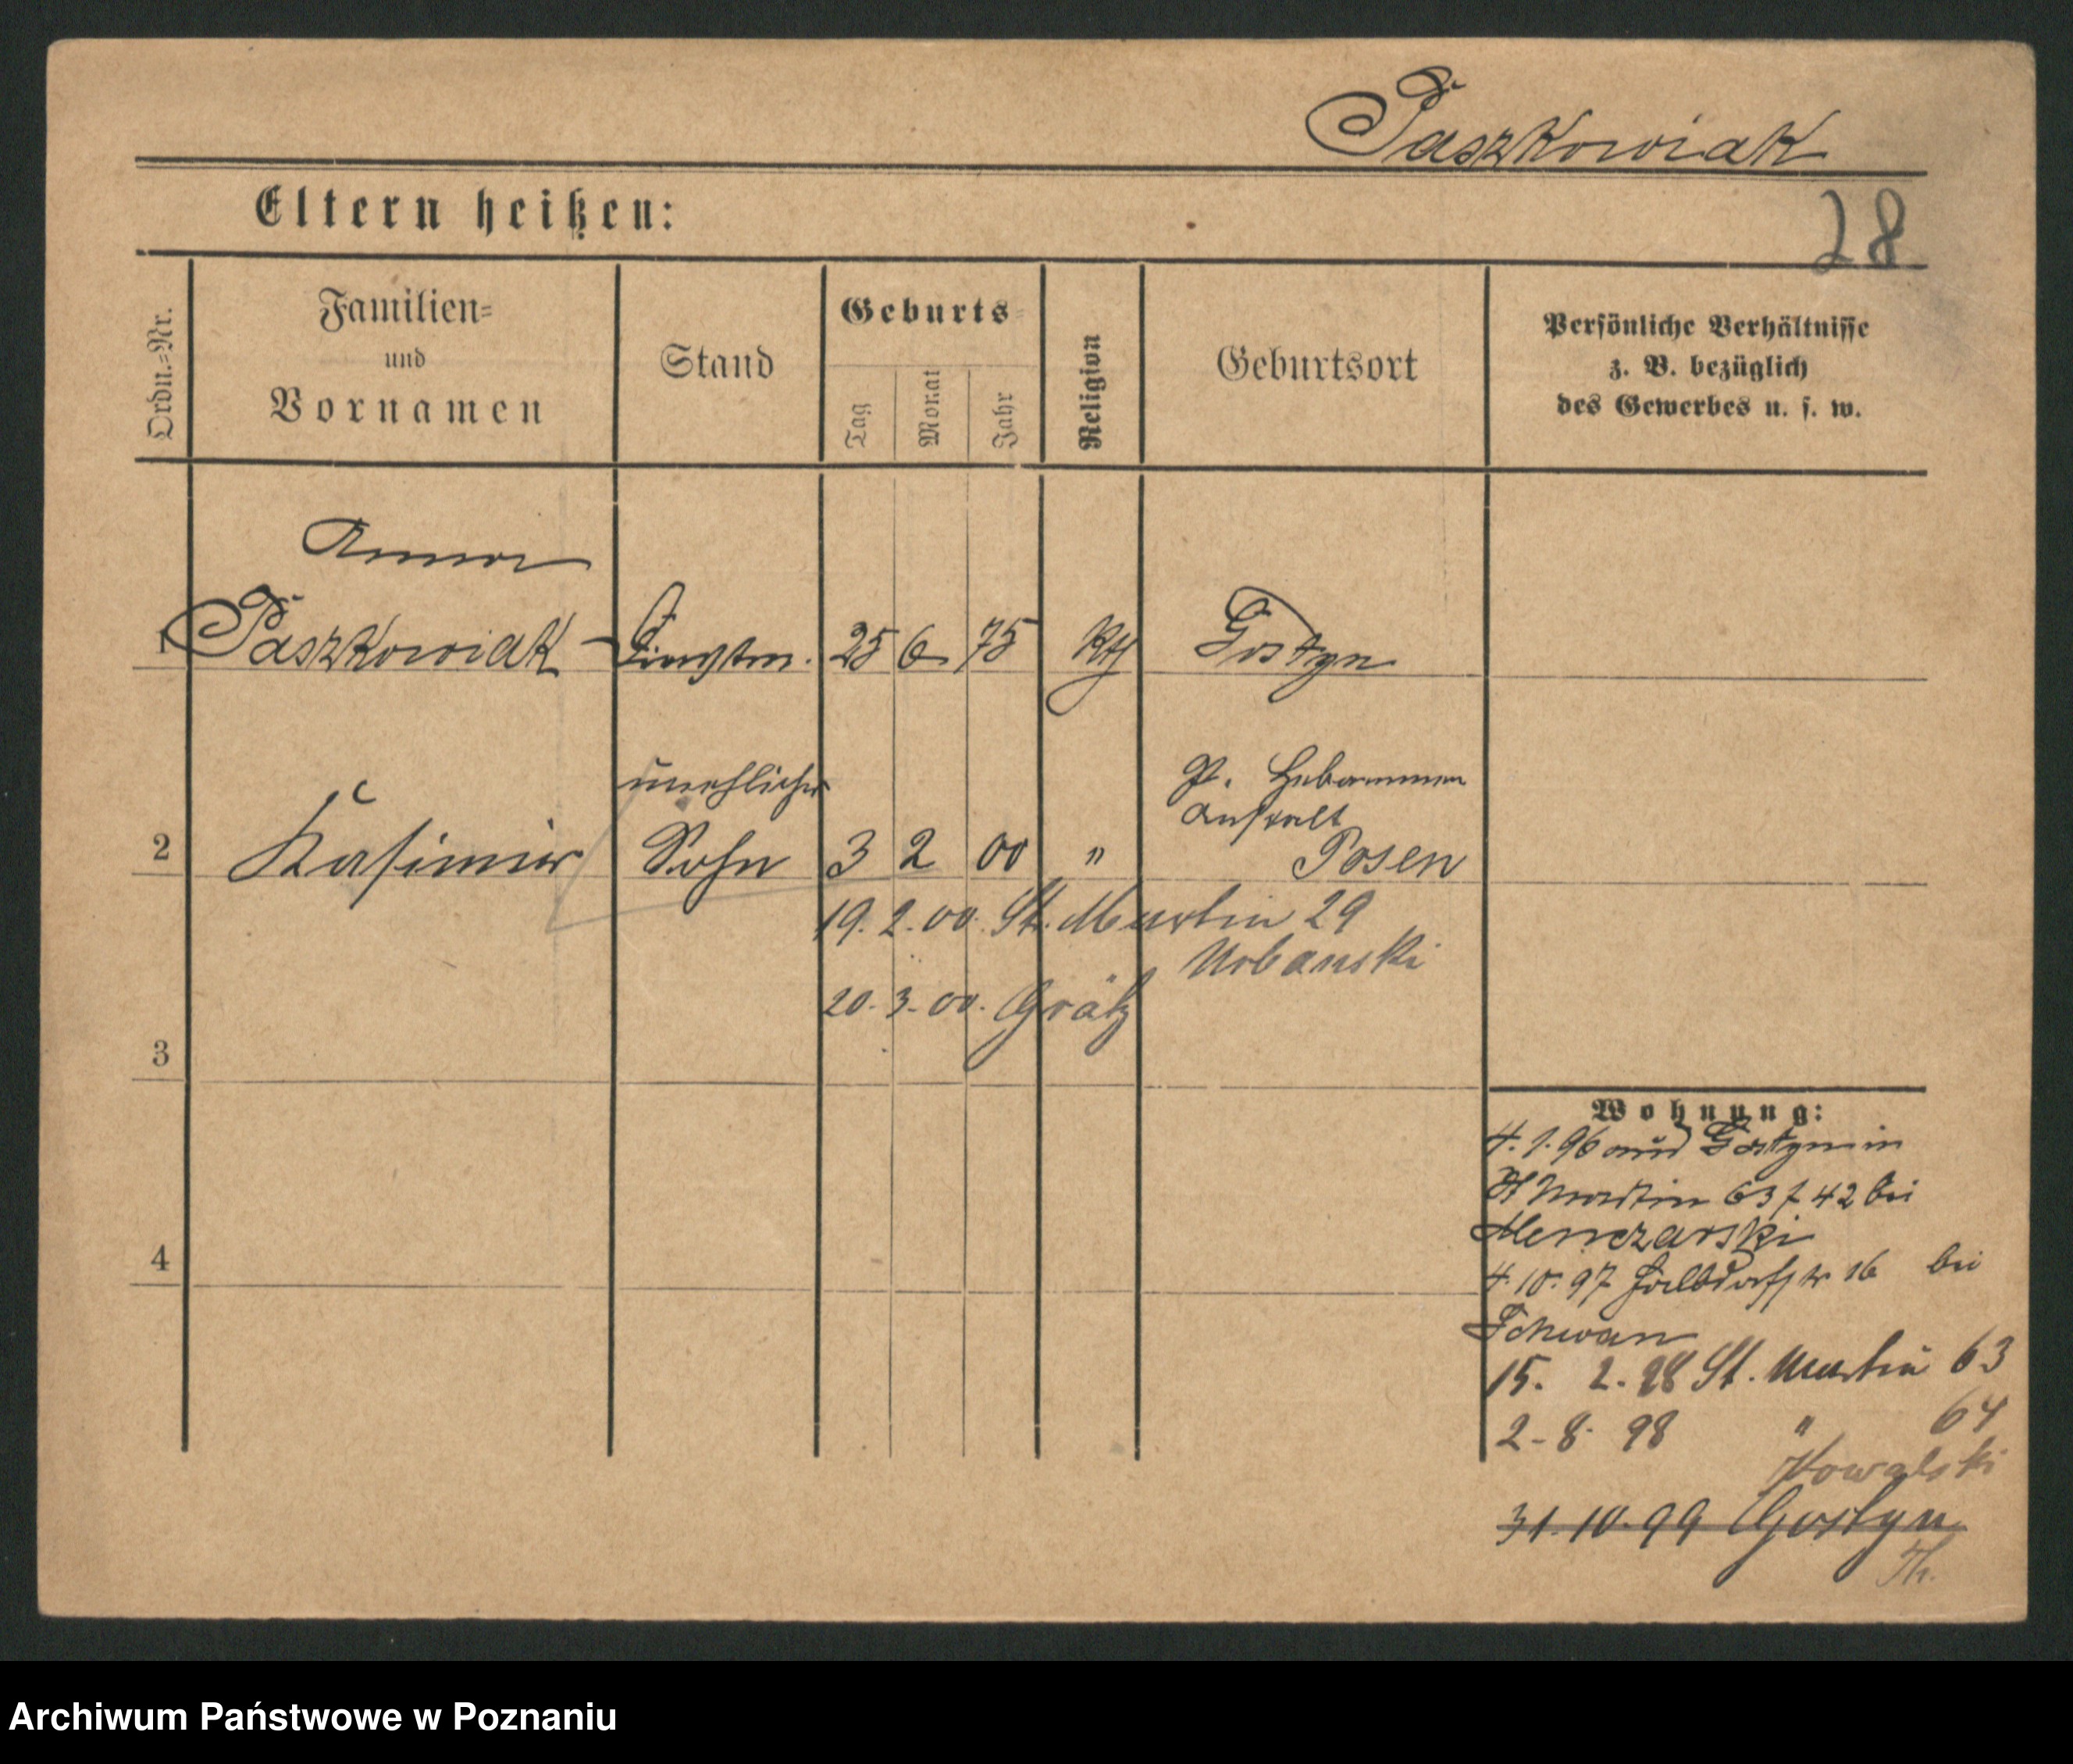 Paszkowiak
28
Eltern heißen:
Ordn.=Nr.
Familien=
und
Vornamen
Stand
Geburts=
Tag
Monat
Jahr
Religion
Geburtsort
Persönliche Verhältnisse
z. B. bezüglich
des Gewerbes u. s. w.
Anna
1 Paszkowiak 25 6 75 Kth Gostyn
unehlicher P. Hebammen
Anstalt
2 Kasimir Sohn 3 2 00 " Posen
19. 2. 00. St. Martin 29
Urbanski
20. 3. 00. Grätz
3
Wohnung:
4. 1. 96 aus Gostyn in
St Martin 63 42 bei
4
4. 10. 97 16 bei
Schwan
15. 2. 98 St. Martin 63
2. 8. 98 " 64
Kowalski
31. 10. 99 Gostyn
Th.
Archiwum Państwowe w Poznaniu